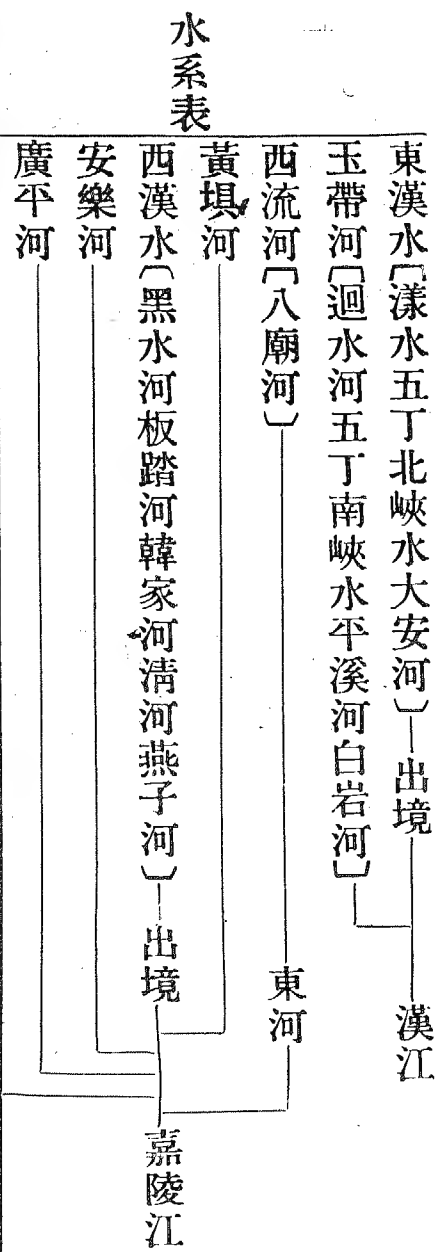 水系表
東漢水〔漾水五丁北峽水大安河〕—出境—漢江
玉帶河〔迴水河五丁南峽水平溪河白岩河〕
西流河〔八廟河〕—東河
黃垻河
西漢水〔黑水河板踏河韓家河淸河燕子河〕—出境—嘉陵江
安樂河
廣平河